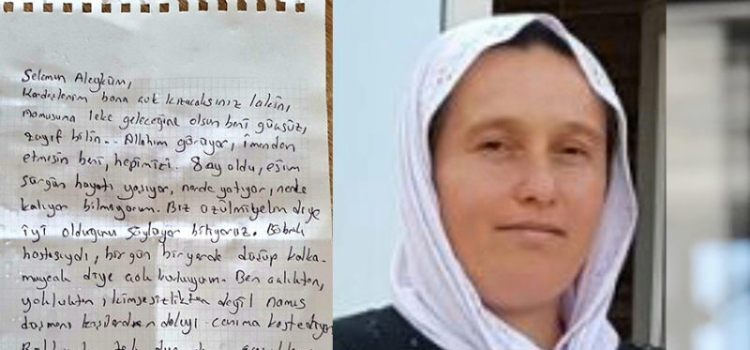 Selamun Aleyküm,
Kardeşlerim bana çok kızacaksınız lakin,
Namusuma leke geleceğine olsun beni güçsüz,
zayıf bilin.. Allahım görüyor, imandan
etmesin beni, hepimizi. 8 ay oldu, eşim
sürgün hayatı yaşıyor, nerde yatıyor, nerde
kalıyor bilmiyorum. Biz üzülmiyelim diye
iyi olduğunu söylüyor biliyoruz. Böbrek
hastasıydı, bir gün bir yerde düşüp kalka-
mayacak diye çok korkuyom. Ben açlıktan,
yokluktan, kimsesizlikten değil namus
düşmanı kişilerden dolayı canıma kastediyom